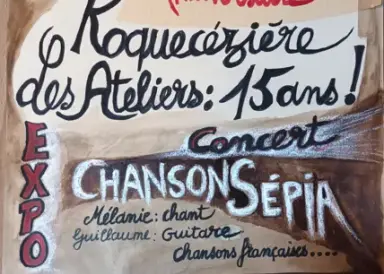 Roquecézière
des Ateliers : 15 ans !
EXPO
Concert
CHANSON SÉPIA
Mélanie : chant
Guillaume : Guitare
Chansons françaises....